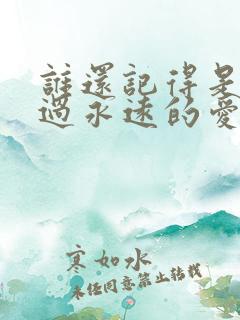 誰還記得是
過永遠的愛
寒如水
未經同意禁止轉載